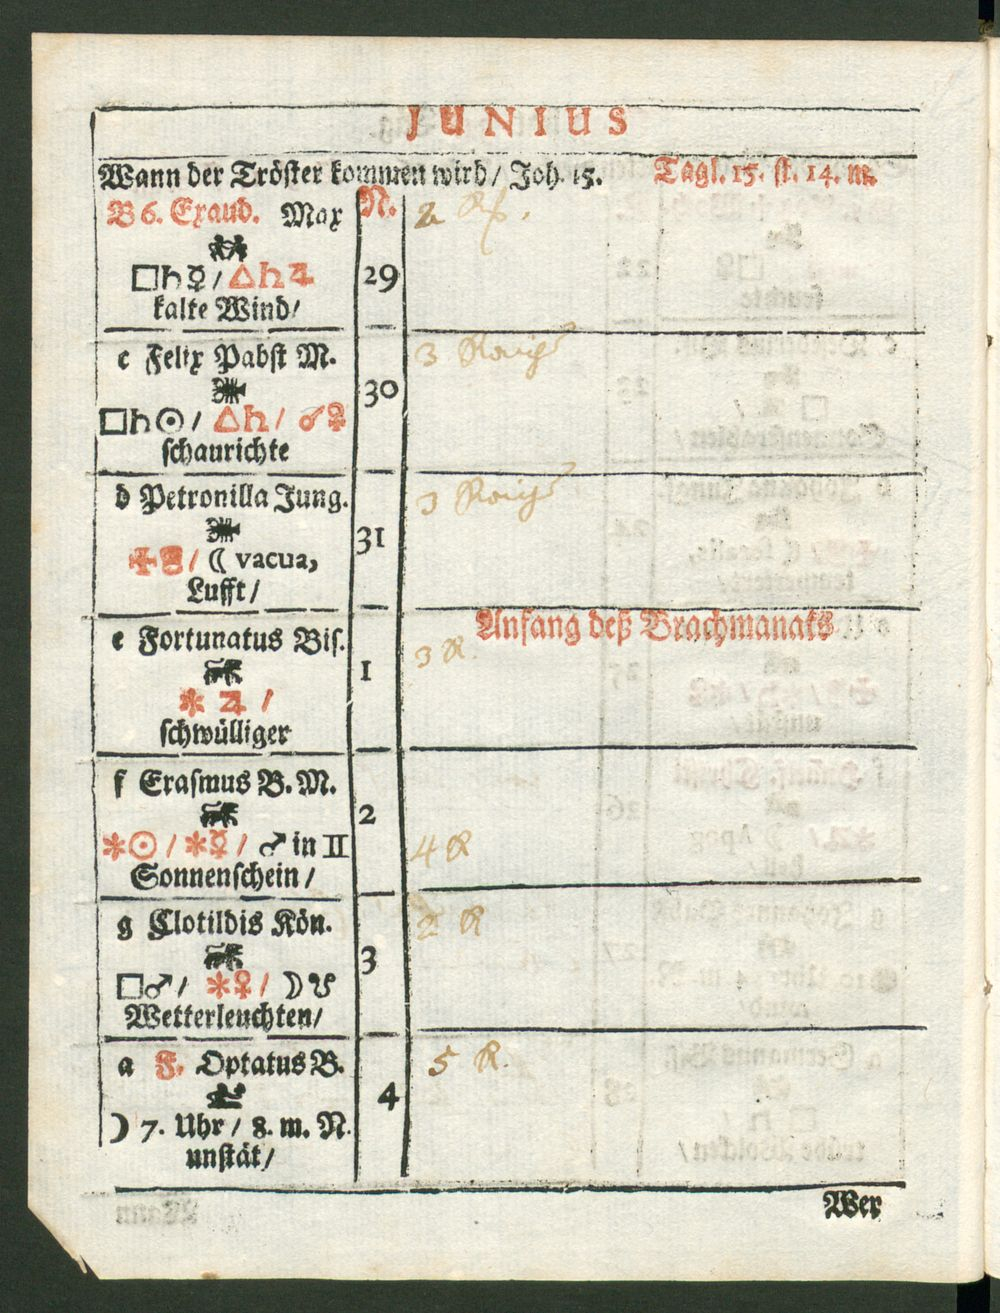 JUNIUS
Wann der Tröster kommen wird / Joh. 15. Tagl. 15. st. 14. m.
B 6. Exaud. Max N. 2 R
□♄☿ / △♄♃ 29
kalte Wind /
c Felix Pabst M. 3
30
□♄☉ / △♄ / ☌♀
schaurichte
d Petronilla Jung. 3
☾ vacua, 31
Lufft /
e Fortunatus Bis. Anfang deß Brachmanats
1 3 R.
✱ ♃ /
schwülliger
f Erasmus B. M.
2
✱☉ / ✱☿ / ♂ in II 4 R
Sonnenschein /
g Clotildis Kön. 2 R
3
□♂ / ✱♀ / ☽☋
Wetterleuchten /
a F. Optatus B. 5 R.
4
☽ 7. Uhr / 8. m. N.
unstät /
Wer